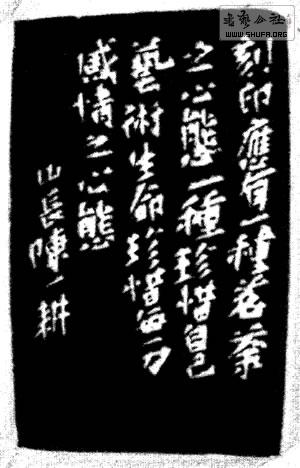 刻印應有一種若茶
之心態一種珍惜自己
藝術生命珍惜每一方
感情之心態
山長陳一耕
WWW.SHUFA.ORG